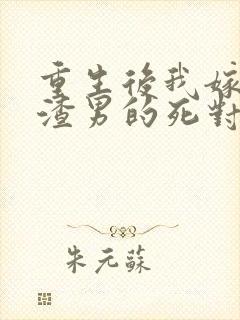 重生後我嫁
渣男的死對
朱元蘇